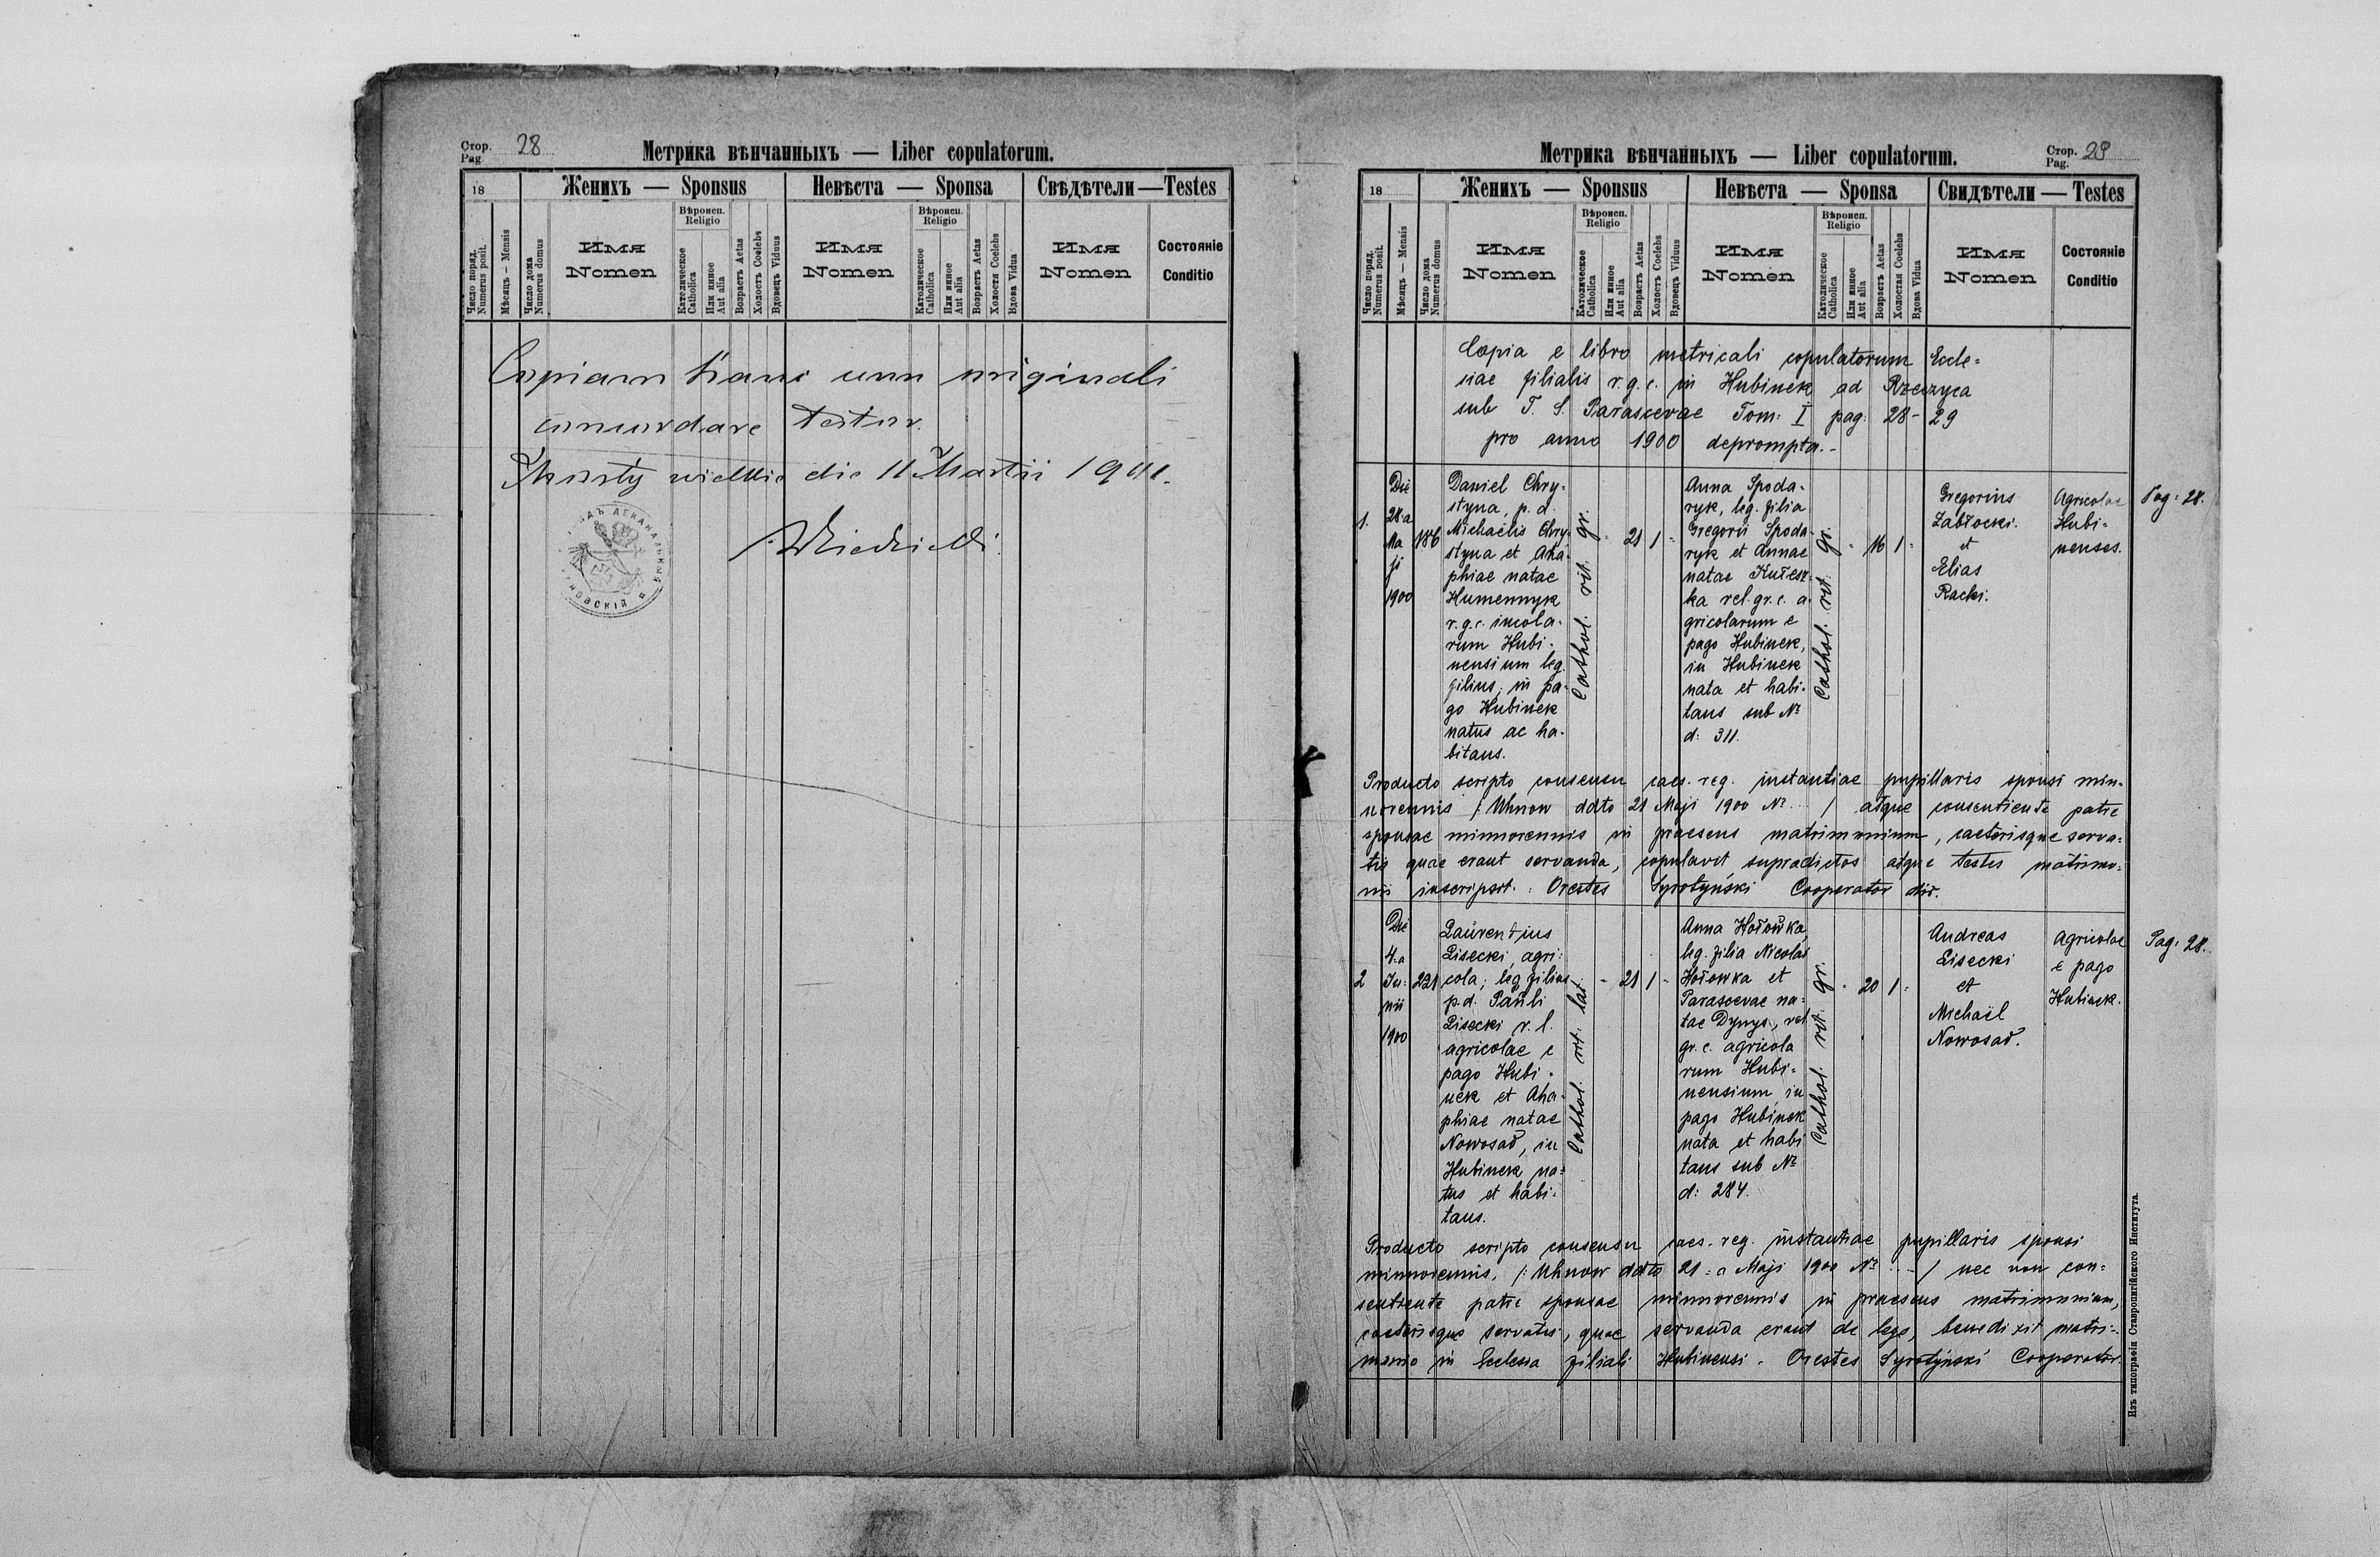 Стор. 28
Pag.
Метрика вѣнчанныхъ — Liber copulatorum.
18
Женихъ — Sponsus
Невѣста — Sponsa
Свѣдѣтели — Testes
Число поряд.
Numerus posit.
Мѣсяць — Mensis
Число дома
Numerus domus
Имя
Nomen
Вѣроисп.
Religio
Католическое
Catholica
Или инное
Aut alia
Возрастъ Aetas
Холостъ Coelebs
Вдовецъ Viduus
Имя
Nomen
Вѣроисп.
Religio
Католическое
Catholica
Или инное
Aut alia
Возрастъ Aetas
Холостя Coelebs
Вдова Vidua
Имя
Nomen
Состоянiе
Conditio
Copiam hanc cum originali
concordare testor.
wielkie die 11 Martii 1901.
Метрика вѣнчанныхъ — Liber copulatorum.
Стор. 29
Pag.
18
Женихъ — Sponsus
Невѣста — Sponsa
Свидѣтели — Testes
Число поряд.
Numerus posit.
Мѣсяць — Mensis
Число дома
Numerus domus
Имя
Nomen
Вѣроисп.
Religio
Католическое
Catholica
Или инное
Aut alia
Возрастъ Aetas
Холостъ Coelebs
Вдовецъ Viduus
Имя
Nomen
Вѣроисп.
Religio
Католическое
Catholica
Или инное
Aut alia
Возрастъ Aetas
Холостая Coelebs
Вдова Vidua
Имя
Nomen
Состоянiе
Conditio
Copia e libro metricali copulatorum Eccle=
siae filialis r. g. c. in Hubinek ad Rzeczyca
sub T. S. Parascevae Tom: I pag: 28 - 29
pro anno 1900 deprompta.-
1.
Die
28.a
Ma
ji
1900
186
Daniel Chry-
styna, p. d.
Michaelis Chry-
styna et Aha-
phiae natae
Humennyk
r. g. c. incola-
rum Hubi-
nensium leg.
filius, in pa-
go Hubinek
natus ac ha-
bitans.
Cathol. rit. gr.
-
21
1
-
Anna Spoda-
ryk, leg. filia
Gregorii Spoda-
ryk et Annae
natae Kułesz-
ka rel. gr. c. a-
gricolarum e
pago Hubinek,
in Hubinek
nata et habi-
tans sub №
d: 311.
Cathol. rit. gr.
-
16
1
-
Gregorius
Zabłocki.
et
Elias
Racki.
Agricolae
Hubi-
nenses.
Pag: 28.
Producto scripto consensu caes. reg. instantiae pupillaris sponsi min-
norennis /: Uhnow ddto 21 Maji 1900 № / atque consentiente patre
sponsae minnorennis in praesens matrimonium, caeterisque serva=
tis quae erant servanda, copulavit supradictos atque testes matrimo-
nii inscripsit. : Orestes Syrotyński Cooperator
2
Die
4.a
Ju=
nii
1900
221
Laurentius
Lisecki, agri-
cola; leg. filius
p. d. Pauli
Lisecki r. l.
agricolae e
pago Hubi-
nek et Aha-
phiae natae
Nowosad, in
Hubinek na-
tus et habi-
tans.
Cathol. rit. lat
-
21
1
-
Anna Hołowka
leg. filia Nicolai
Hołowka et
Parascevae na=
tae Dynys, rel
gr. c. agricola
rum Hubi=
nensium, in
pago Hubinek
nata et habi
tans sub №
d: 284.
Cathol. rit. gr.
-
20
1
-
Andreas
Lisecki
et
Michaël
Nowosad.
Agricolae
e pago
Hubinek.
Pag: 28.
Producto scripto consensu caes. reg. instantiae pupillaris sponsi
minnorennis, /: Uhnow ddto 21=a Maji 1900 № ... / nec non con=
sentiente patre sponsae minnorennis in praesens matrimonium,
caeterisque servatis, quae servanda erant de lege, benedixit matri-
monio in Ecclesia filiali Hubinensi. Orestes Syrotyński Cooperator.
Изъ типографiи Ставропигiйского Института.